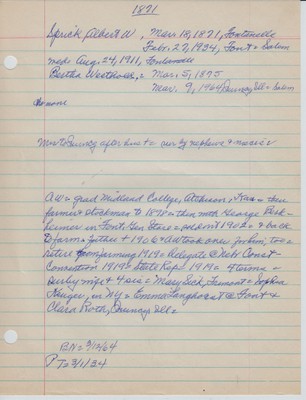 1871
Sprick Albert W., Mar. 18, 1871, Fontanelle
Feb. 27, 1934, Font = Salem
md Aug. 24, 1911, Fontanelle
Bertha Westhold, = Mar. 5, 1875
Mar. 9, 1964 Quincy Ill = Salem
No more
Mov to Quincy after hus d = sur by nephews & nieces =
AW = grad Midland College, Atchison, Kas =
farmer & stockman to 1898 = then with George
heimer in Font. Gen Store = & back
to farm = father + 1906 & AW took over for him, too =
retire farming 1919 = delegate @ Neb Const =
Convention 1919 = State Rep = 1919 = 4 terms =
sur by wife & 4 sis = Mary Sick, Fremont = Sophia
Kruger, in NY = Emma Langhorst @ Font &
Clara Roth, Quincy Ill =
BN = 3/12/64
FT = 3/1/34